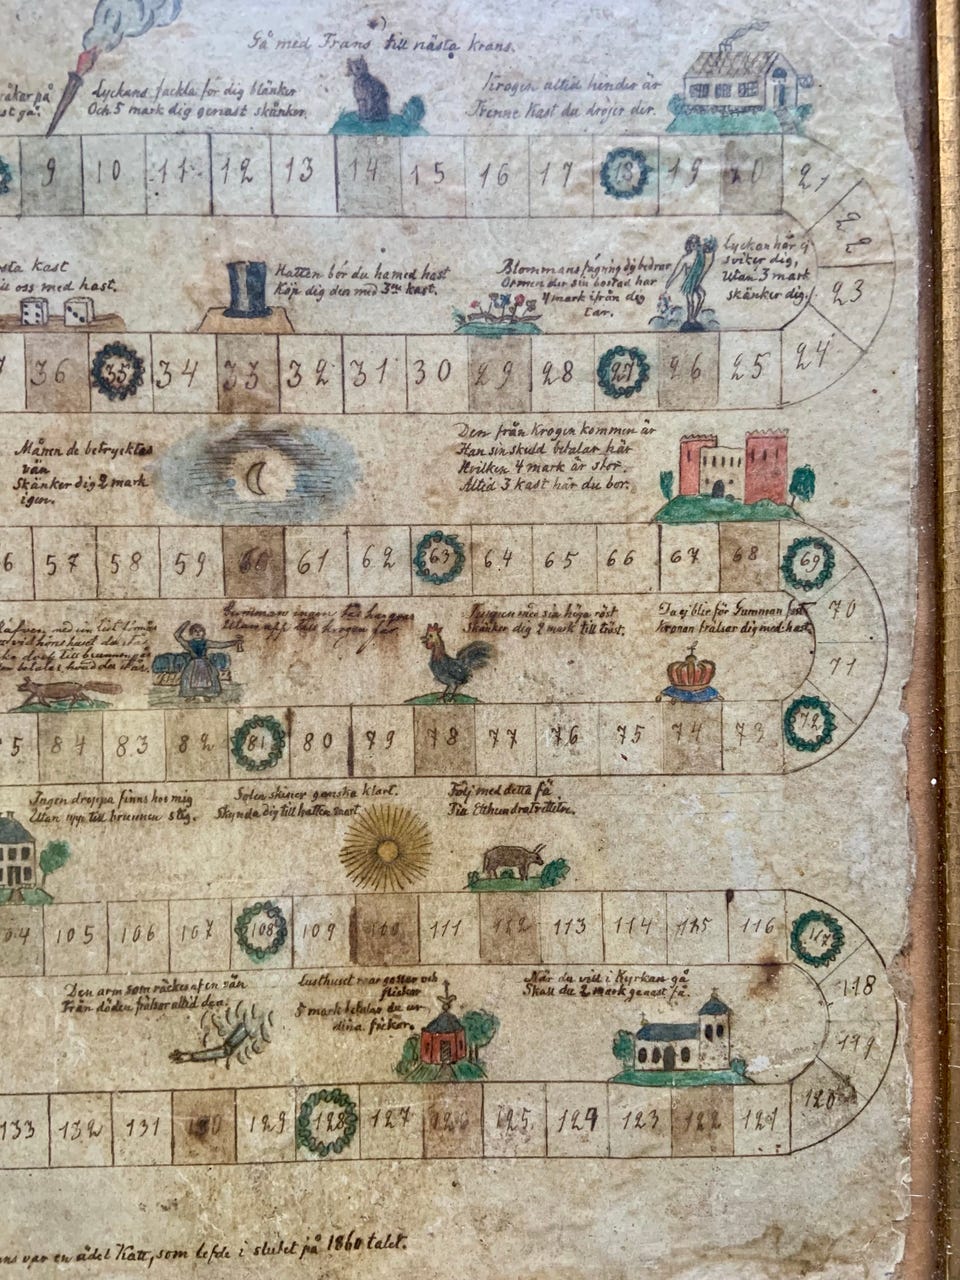 Gå med Frans till nästa krans.
Lyckans fackla för dig blänker
Och 5 mark dig genast skänker.
Krogen altid hinder är
Trenne Kast du dröjer der.
9 10 11 12 13 14 15 16 17 18 19 20 21
22
23
24
kast
oss med hast.
Hatten bör du ha med hast
Köp dig den med 3ne kast.
Blommans fägring dig bedrar
Ormen der sin bostad har
4 mark ifrån dig
tar.
Lyckan här ej
sviker dig,
Utan 3 mark
skänker dig.
36 35 34 33 32 31 30 29 28 27 26 25
Månen de betrycktas
vän
Skänker dig 2 mark
igen.
Den från Krogen kommen är
Han sin skuld betalar här
Hvilken 4 mark är stor.
Altid 3 kast här du bor.
57 58 59 60 61 62 63 64 65 66 67 68 69
70
71
72
Gumman ingen
Utan upp till krogen får.
Tuppen med sin höga röst
Skänker dig 2 mark till tröst.
Du ej blir för Gumman fast
Kronan frälsar dig med hast
84 83 82 81 80 79 78 77 76 75 74 73
Ingen droppa finns hos mig
Utan upp till brunnen stig.
Solen skiner ganska klart.
Skynda dig till hatten snart.
Följ med detta få
Tia Etthundratrettitvå.
105 106 107 108 109 110 111 112 113 114 115 116 117
118
119
120
Den arm som räckes af en vän
Från döden frälsar altid den.
Lusthuset
5 mark betalar du ur
dina fickor.
När du vill i Kyrkan gå
Skall du 2 mark genast få.
133 132 131 130 129 128 127 126 125 124 123 122 121
var en ädel Katt, som lefde i slutet på 1860 talet.